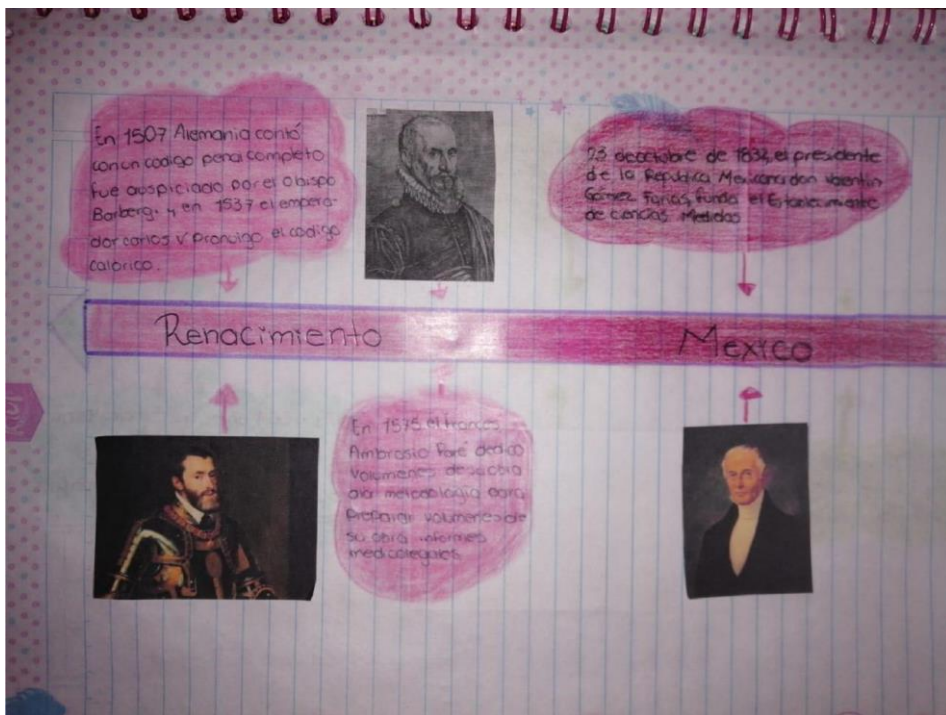 En 1507 Alemania contó
con un codigo penal completo
fue auspiciado por el obispo
Barberg. y en 1537 el empera-
dor carlos V promulgo el codigo
calórico.
23 de octubre de 1833, el presidente
de la Republica Mexicana don Valentin
Gómez Farias, funda el Establecimiento
de ciencias Medidas
Renacimiento
Mexico
En 1575 el frances
Ambrosio Paré dedico
volumenes de su obra
a la metodologia para
Preparar volumenes de
su obra informes
medicolegales